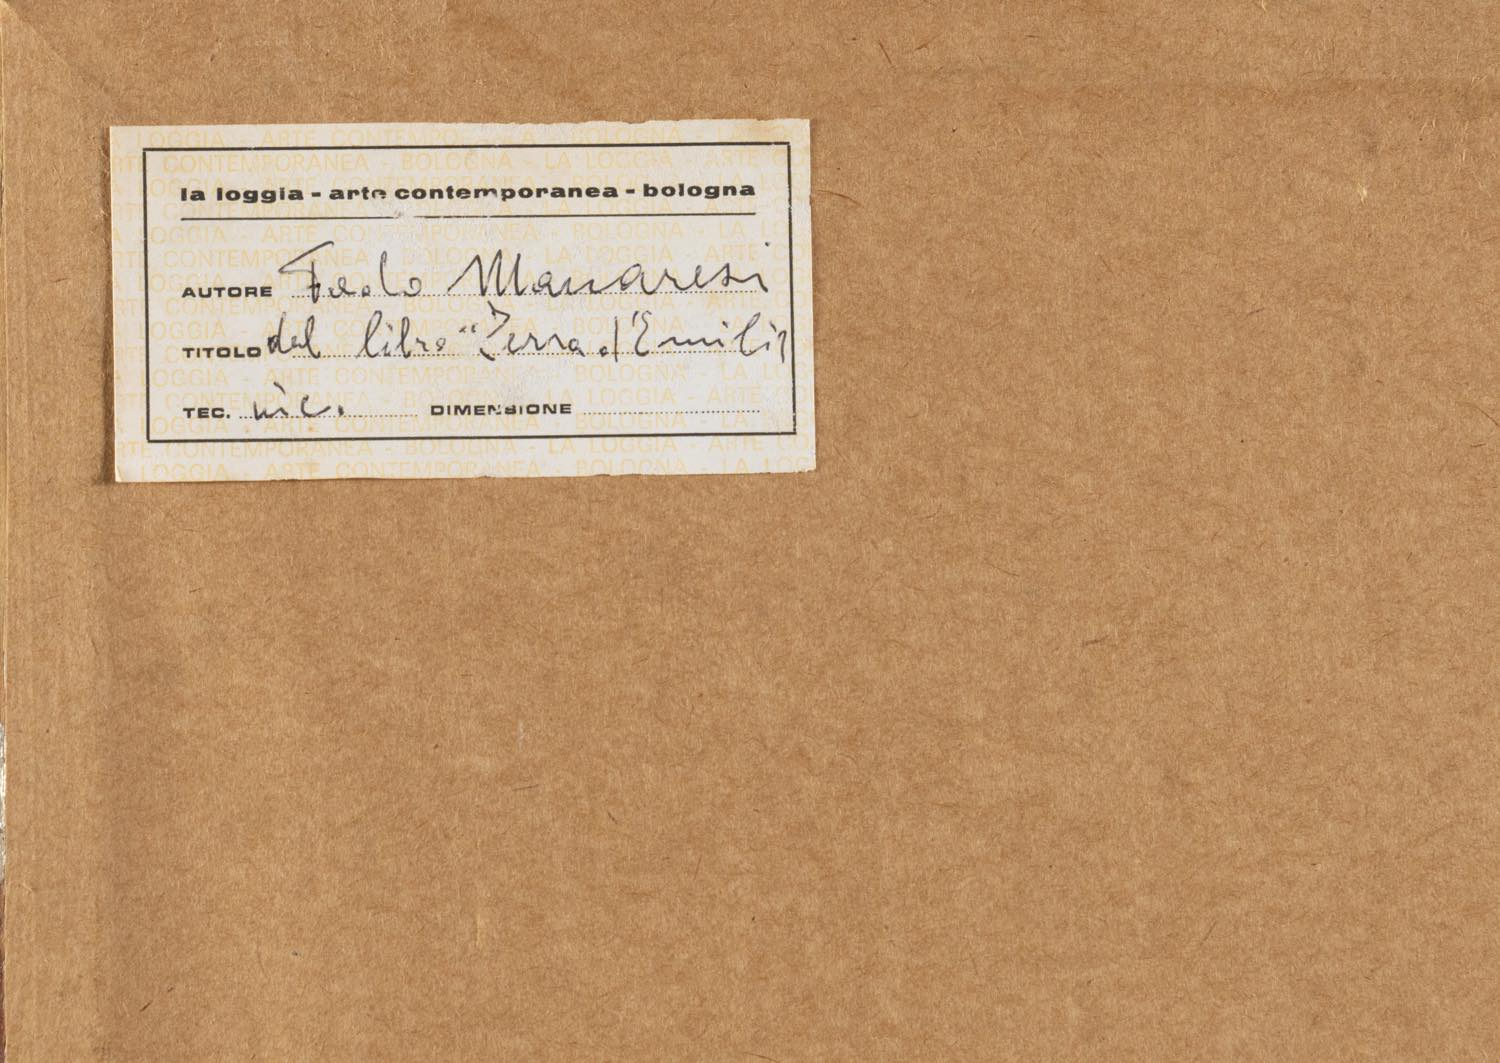 la loggia - arte contemporanea - bologna
AUTORE Paolo Manaresi
TITOLO dal libro "Terra d'Emilia
TEC. inc. DIMENSIONE